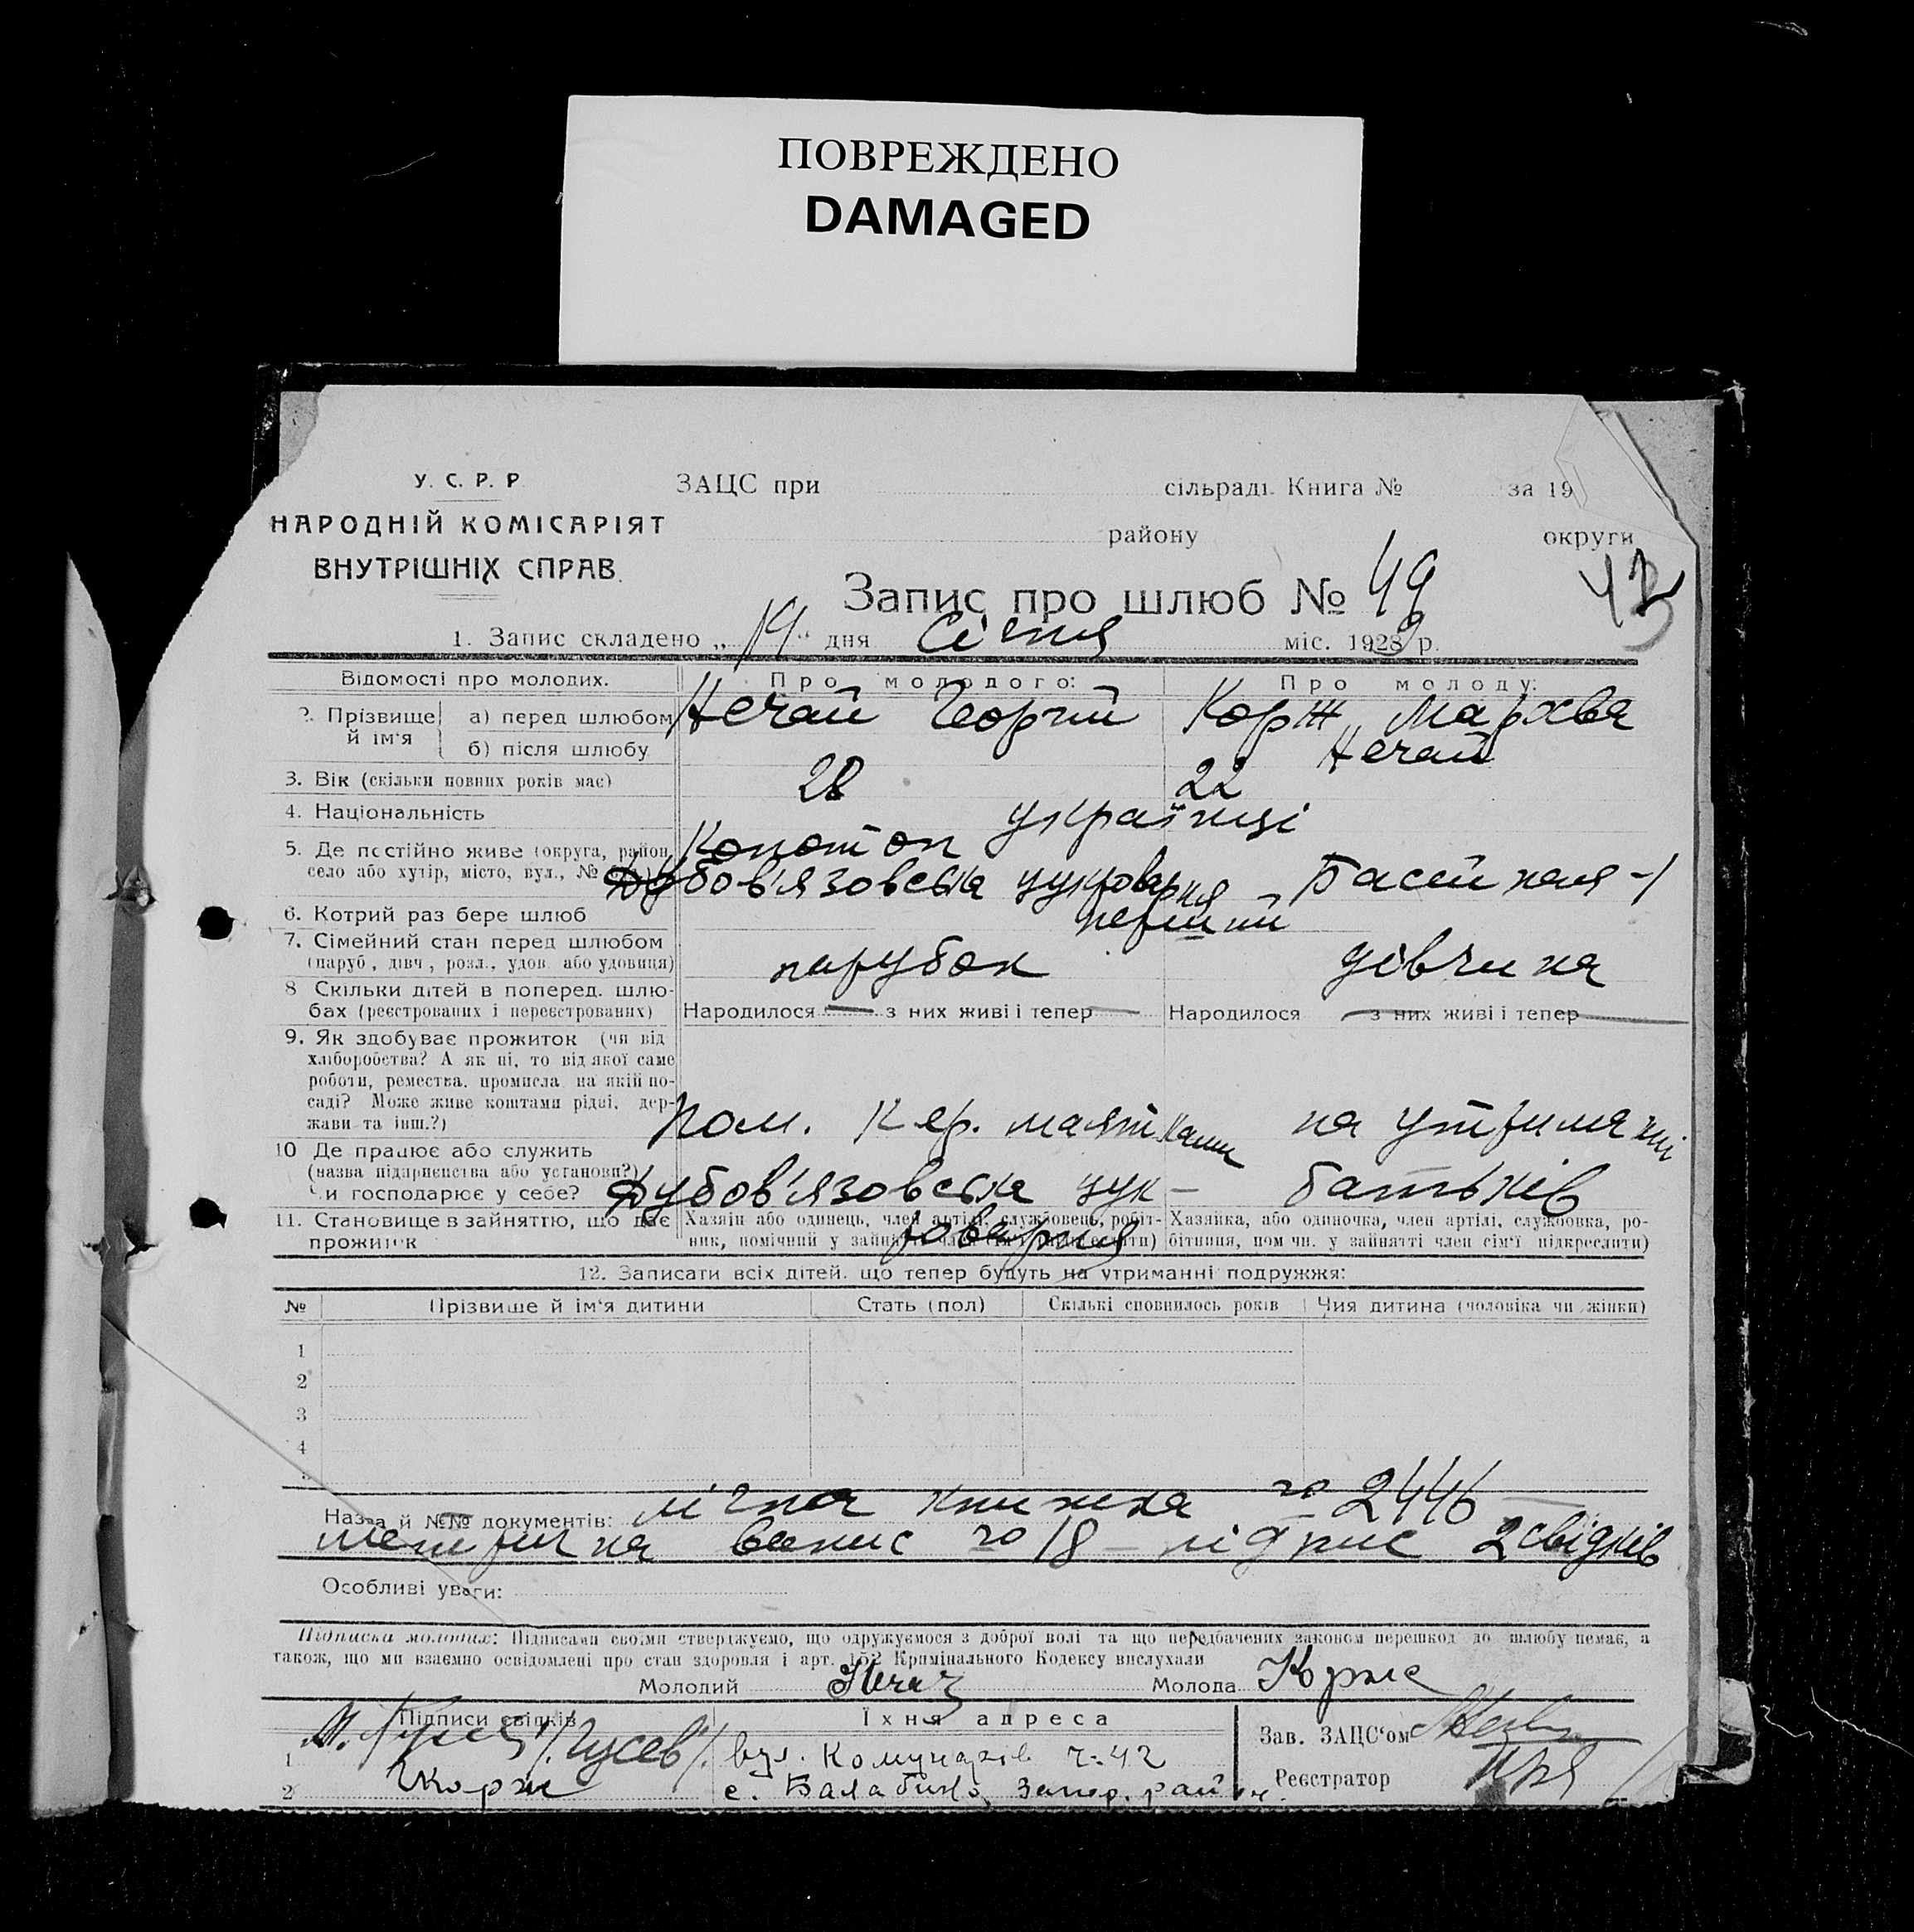 ПОВРЕЖДЕНО
DAMAGED
У. С. Р. Р.
НАРОДНІЙ КОМІСАРІЯТ
ВНУТРІШНІХ СПРАВ.
ЗАЦС при сільраді Книга № за 19
району округи
Запис про шлюб № 49
43
1. Запис складено „19“ дня Січня міс. 1929 р.
Відомости про молодих. Про молодого: Про молоду:
2. Прізвище й ім'я а) перед шлюбом Нечай Георгій Корж Мархва
б) після шлюбу Нечай
3. Вік (скільки повних років має) 28 22
4. Національність українці
5. Де постійно живе (округа, район, Конотоп
село або хутір, місто, вул., № Дубов'язовська цукроварня – Басейная – 1
6. Котрий раз бере шлюб перший
7. Сімейний стан перед шлюбом
(паруб., дівч., розл., удов. або удовиця) парубок дівчина
8 Скільки дітей в поперед. шлю-
бах (реєстрованих і нереєстрованих) Народилося — з них живі і тепер — Народилося з них живі і тепер —
9. Як здобуває прожиток (чи від
хліборобства? А як ні, то від якої саме
роботи, ремества, промисла на якій по-
саді? Може живе коштами рідні, дер-
жави та інш.?) Пом. Кер. маятками на утриманні
10 Де працює або служить
(назва підприємства або установи?)
Чи господарює у себе? Дубов'язовська цук- батьків
роварня
11. Становище в зайняттю, що дає
прожиток
Хазяїн або одинець, член артілі, службовець, робіт-
ник, помічний у зайнятті член сім'ї (підкреслити)
Хазяйка, або одиночка, член артілі, службовка, ро-
бітниця, пом чн. у зайнятті член сім'ї підкреслити)
12. Записати всіх дітей. що тепер будуть на утриманні подружжя:
№ Прізвище й ім'я дитини Стать (пол) Скількі сповнилось років Чия дитина (чоловіка чи жінки)
1
2
3
4
5
Назва й №№ документів: лічная книжка № 2446
метрична випис № 18 – підпис 2 свідків
Особливі уваги:
Підписка молодих: Підписами своїми стверджуємо, що одружуємося з доброї волі та що передбачених законом перешкод до шлюбу немає, а
також, що ми взаємно освідомлені про стан здоровля і арт. 152 Кримінального Кодексу вислухали
Молодий Нечай Молода Корж
Підписи свідків Їхня адреса
1 /Гусев/. вул. Комунарів ч. 42
2 Корж с. Балабино, Запор. район.
Зав. ЗАЦС'ом
Реєстратор